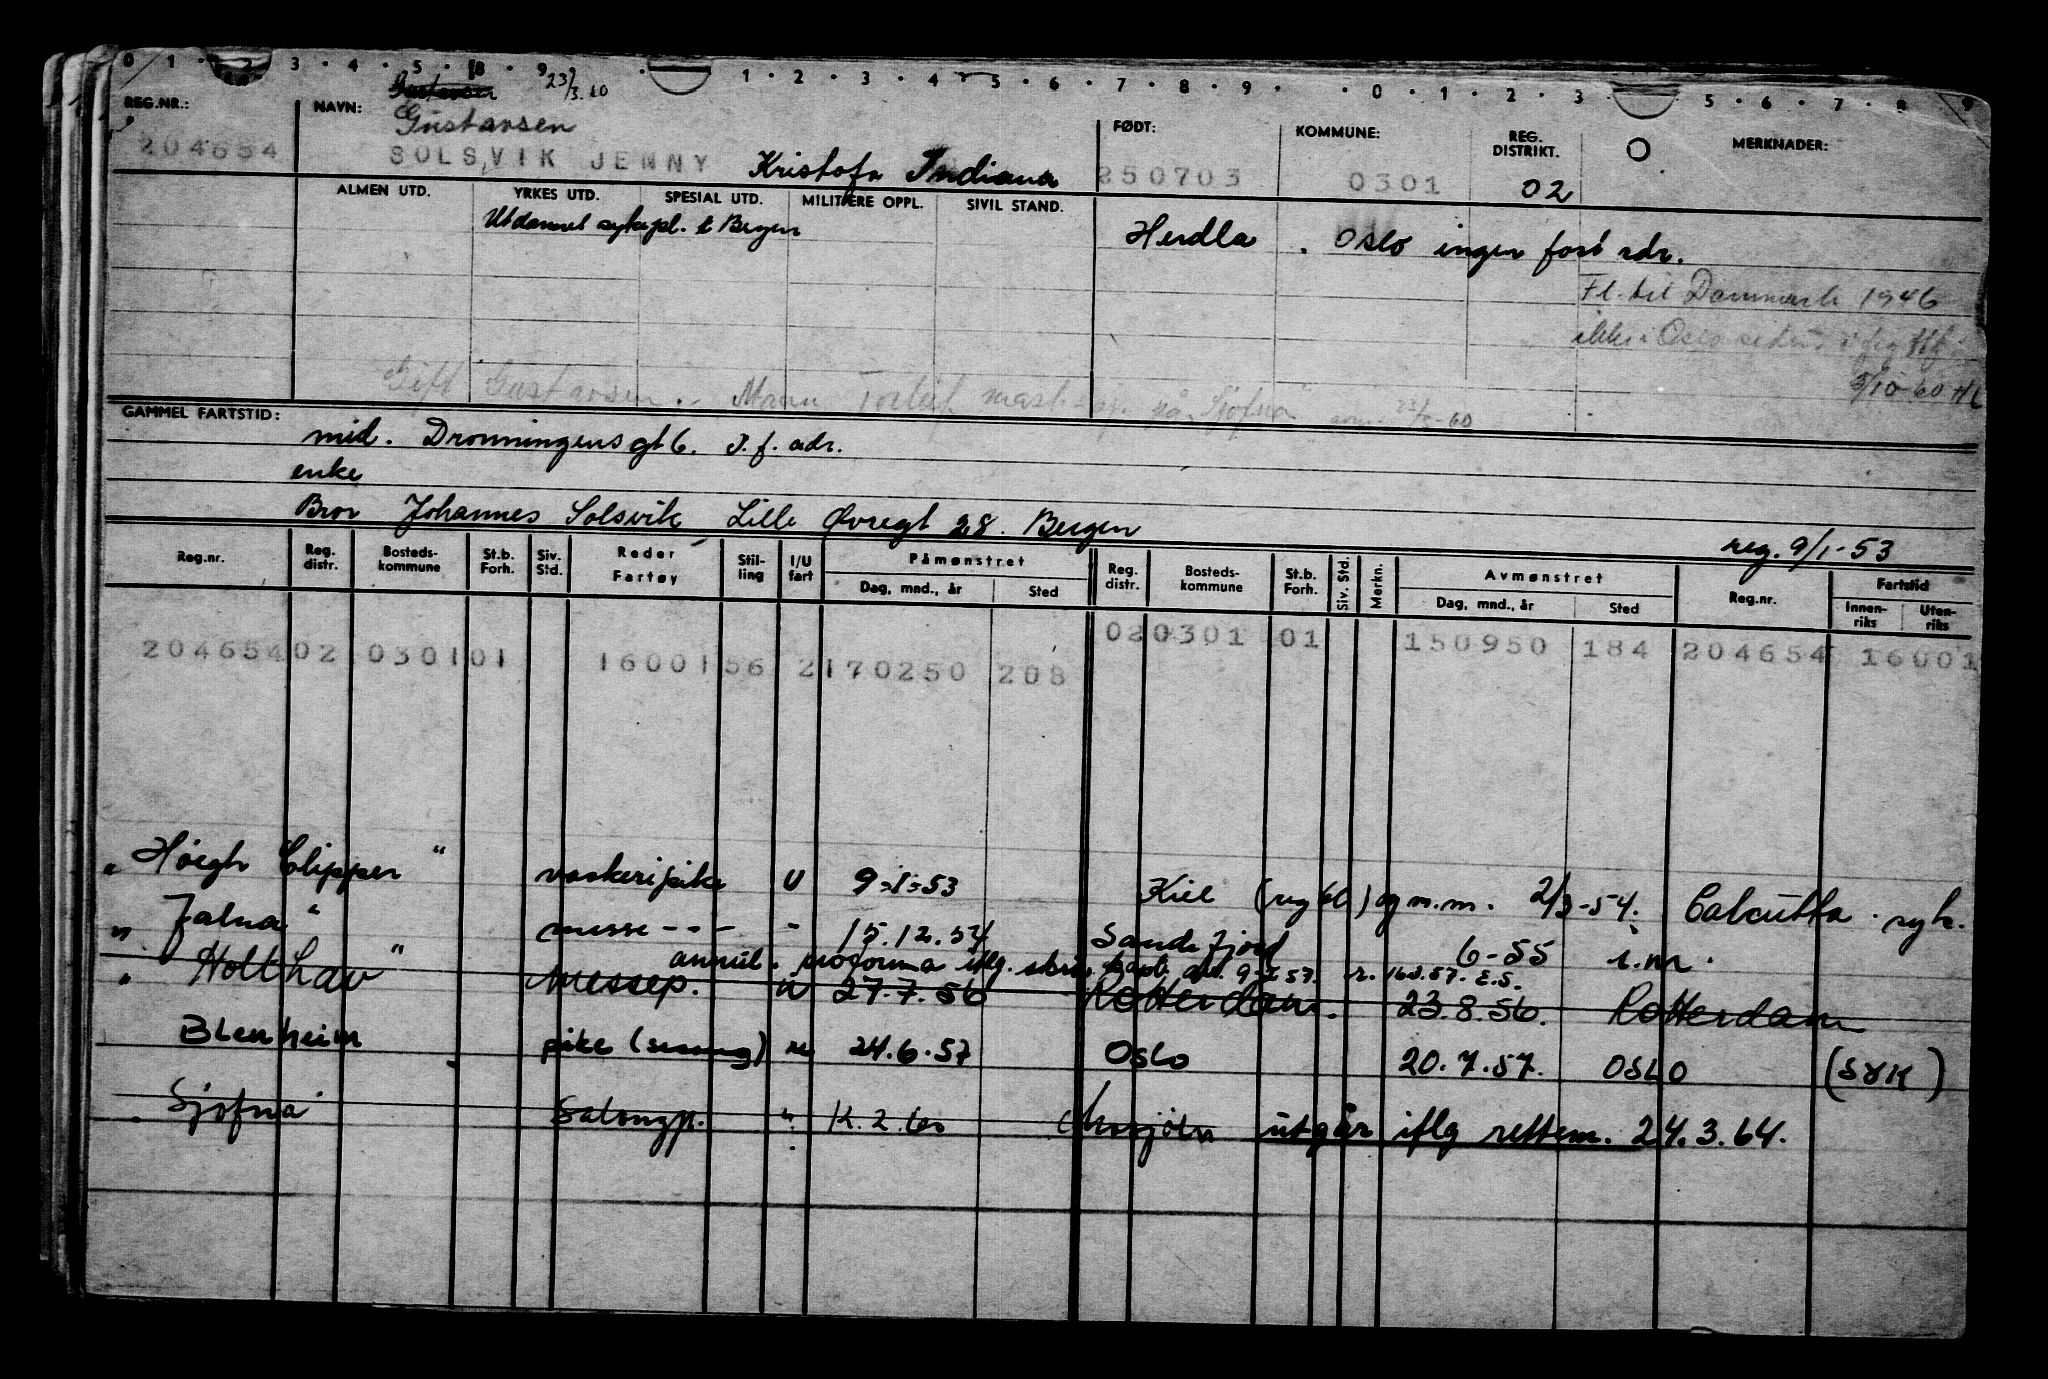 0 1 2 3 4 5 8 9 1 2 3 4 5 6 7 8 9 0 1 2 3 5 6 7 8 9
Gustavsen 23/3.60
REG.NR.: NAVN: Gustavsen FØDT: KOMMUNE: REG. DISTRIKT. MERKNADER:
204654 SOLSVIK JENNY Kristofa Indiana 250703 0301 02
ALMEN UTD. YRKES UTD. SPESIAL UTD. MILITÆRE OPPL. SIVIL STAND.
Utdannet sykepl. t Bergen Herdla . Oslo ingen fast adr.
Fl. til Danmark 1946
ikke i Oslo siden
5/10-60 HL
Gift Gustavsen. Mann Torleif på "Sjofna" 23/3-60
GAMMEL FARTSTID:
mid. Dronningensgt 6. I.f. adr.
enke
Bror Johannes Solsvik Lille Øvregt 28. Bergen
reg. 9/1-53
Reg.nr. Reg. distr. Bosteds-kommune St.b. Forh. Siv. Std. Reder Fartøy Stil-ling I/U fart Påmønstret Dag, mnd., år Sted Reg. distr. Bosteds-kommune St.b. Forh. Siv. Std. Merkn. Avmønstret Dag, mnd., år Sted Reg.nr. Fartstid Innen-riks Uten-riks
204654 02 0301 01 16001 56 2 170250 208 02 0301 01 150950 184 204654 16001
"Høegh Clipper" vaskeripike U 9-1-53 Kiel 2/3-54. Calcutta. syk.
"Jalna" messe - - - - 15.12.54 Sandefjord 6-55 i.m.
annul. proforma iflg. 9-7 57. E.S.
"Holthav" Messep. U 27.7.56 Rotterdam. 23.8.56. Rotterdam
Blenheim pike (sesong) u 24.6.57 Oslo 20.7.57. OSLO (SYK)
"Sjofna" Salongp. " 2.60 Mosjøen utgår iflg rettem. 24.3.64.